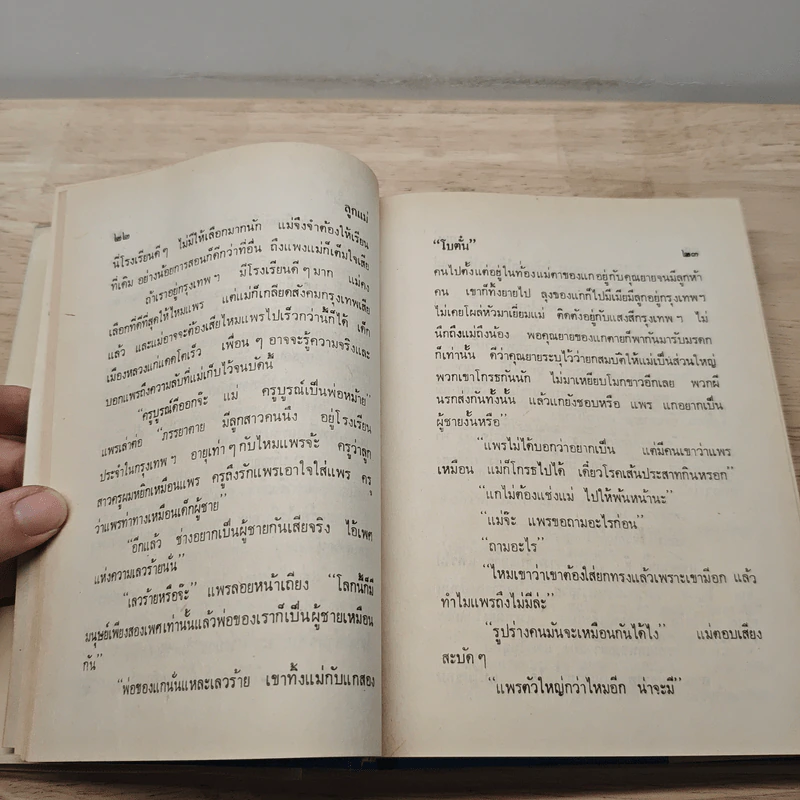 ๒๒
ลูกแม่
นี่โรงเรียนดีๆ ไม่มีให้เลือกมากนัก แม่จึงจำต้องให้เรียน
ที่เดิม อย่างน้อยการสอนก็ดีกว่าที่อื่น ถึงแพงแม่ก็เต็มใจเสีย
ถ้าเราอยู่กรุงเทพฯ มีโรงเรียนดีๆ มาก แม่คง
เลือกที่ดีที่สุดให้ไหมแพร แต่แม่ก็เกลียดสังคมกรุงเทพเสีย
แล้ว และแม่อาจจะต้องเสียไหมแพรไปเร็วกว่านี้ก็ได้ เด็ก
เมืองหลวงแก่แดดโตเร็ว เพื่อนๆ อาจจะรู้ความจริงและ
บอกแพรถึงความลับที่แม่เก็บไว้จนบัดนี้
“ครูบูรณ์ดีออกจ๊ะ แม่ ครูบูรณ์เป็นพ่อหม้าย”
แพรเล่าต่อ “ภรรยาตาย มีลูกสาวคนนึง อยู่โรงเรียน
ประจำในกรุงเทพฯ อายุเท่าๆ กับไหมแพรจ้ะ ครูว่าลูก
สาวครูผมหยิกเหมือนแพร ครูถึงรักแพรเอาใจใส่แพร ครู
ว่าแพรท่าทางเหมือนเด็กผู้ชาย”
“อีกแล้ว ช่างอยากเป็นผู้ชายกันเสียจริง ไอ้เพศ
แห่งความเลวร้ายนั่น”
“เลวร้ายหรือจ๊ะ” แพรลอยหน้าเถียง “โลกนี้ก็มี
มนุษย์เพียงสองเพศเท่านั้นแล้วพ่อของเราก็เป็นผู้ชายเหมือน
กัน”
“พ่อของแกนั่นแหละเลวร้าย เขาทิ้งแม่กับแกสอง
“โบตั๋น”
๒๓
คนไปตั้งแต่อยู่ในท้องแม่ตาของแกอยู่กับคุณยายจนมีลูกห้า
คน เขาก็ทิ้งยายไป ลุงของแกก็ไปมีเมียมีลูกอยู่กรุงเทพฯ
ไม่เคยโผล่หัวมาเยี่ยมแม่ ติดตังอยู่กับแสงสีกรุงเทพฯ ไม่
นึกถึงแม่ถึงน้อง พอคุณยายของแกตายก็พากันมารับมรดก
ก็เท่านั้น ดีว่าคุณยายระบุไว้ว่ายกสมบัติให้แม่เป็นส่วนใหญ่
พวกเขาโกรธกันนัก ไม่มาเหยียบโมกขาวอีกเลย พวกผี
นรกส่งกันทั้งนั้น แล้วแกยังชอบหรือ แพร แกอยากเป็น
ผู้ชายงั้นหรือ”
“แพรไม่ได้บอกว่าอยากเป็น แต่มีคนเขาว่าแพร
เหมือน แม่ก็โกรธไปได้ เดี๋ยวโรคเส้นประสาทกินหรอก”
“แกไม่ต้องแช่งแม่ ไปให้พ้นหน้านะ”
“แม่จ๊ะ แพรขอถามอะไรก่อน”
“ถามอะไร”
“ไหมเขาว่าเขาต้องใส่ยกทรงแล้วเพราะเขามีอก แล้ว
ทำไมแพรถึงไม่มีล่ะ”
“รูปร่างคนมันจะเหมือนกันได้ไง” แม่ตอบเสียง
สะบัดๆ
“แพรตัวใหญ่กว่าไหมอีก น่าจะมี”